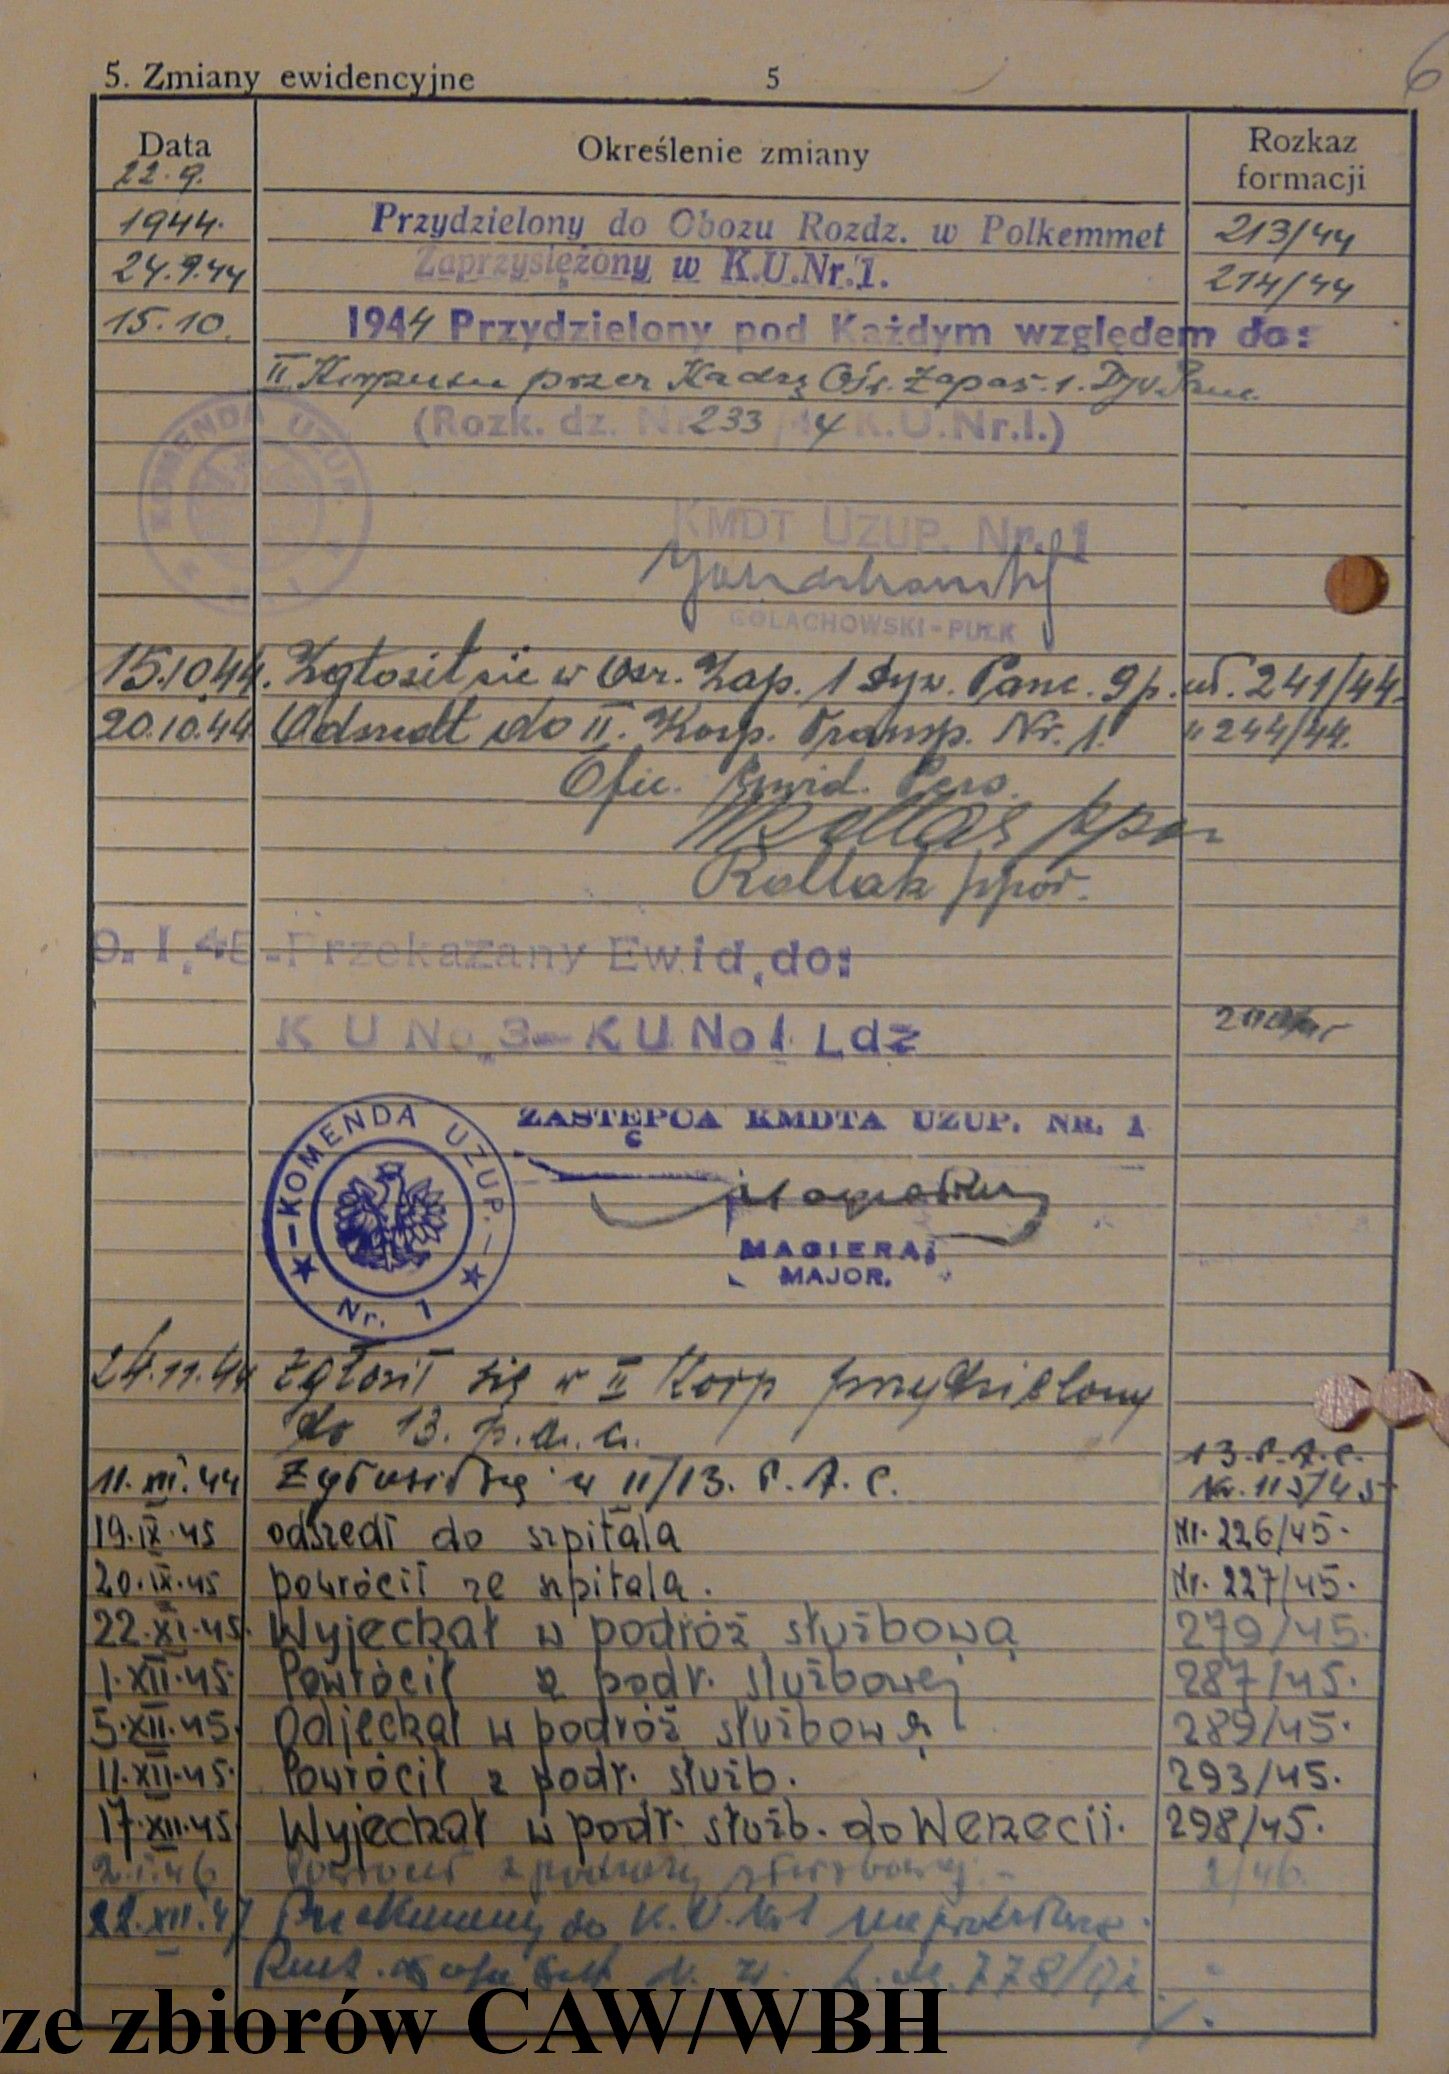 5. Zmiany ewidencyjne 5 6
Data Określenie zmiany Rozkaz formacji
22.9.
1944. Przydzielony do Obozu Rozdz. w Polkemmet 213/44
24.9.44 Zaprzysiężony w K.U.Nr.1. 214/44
15.10. 1944 Przydzielony pod Każdym względem do:
II Korpusu przez Kadrę Ośr. Zapas. 1. Dyw. Panc.
(Rozk. dz. Nr 233/44 K.U.Nr.1.)
KOMENDA UZUP.
KMDT UZUP. Nr. 1
GOLACHOWSKI - PUŁK
15.10.44. Zgłosił sie w Osr. Zap. 1 Dyw. Panc. 9 p. uł. 241/44
20.10.44 Odszedł do II. Korp. Transp. Nr. 1. " 244/44.
Ofic. Ewid. Pers.
Kollak ppor.
9.I.45.-Przekazany Ewid.do:
K U No.3- K U No 1 Ldz
KOMENDA UZUP. Nr. 1
ZASTĘPCA KMDTA UZUP. NR. 1
MAGIERA
MAJOR.
24.11.44 Zgłosił się w II Korp przydzielony
do 13. p.a.c.
13.P.A.C.
11.XII.44 Zgłosił się w II/13. P.A.C. Nr. 115/45
19.IX.45 odszedł do szpitala Nr. 226/45.
20.IX.45 powrócił ze szpitala. Nr. 227/45.
22.XI.45. Wyjechał w podróż służbową 279/45.
1.XII.45. Powrócił z podr. służbowej 287/45.
5.XII.45. Odjechał w podróż służbową 289/45.
11.XII.45. Powrócił z podr. służb. 293/45.
17.XII.45 Wyjechał w podr. służb. do Wenecii. 298/45.
2.I.46 Powrócił z podróży służbowej. 2/46.
22.XII.47 Przekazany do K.U. Nr 1
778/
ze zbiorów CAW/WBH